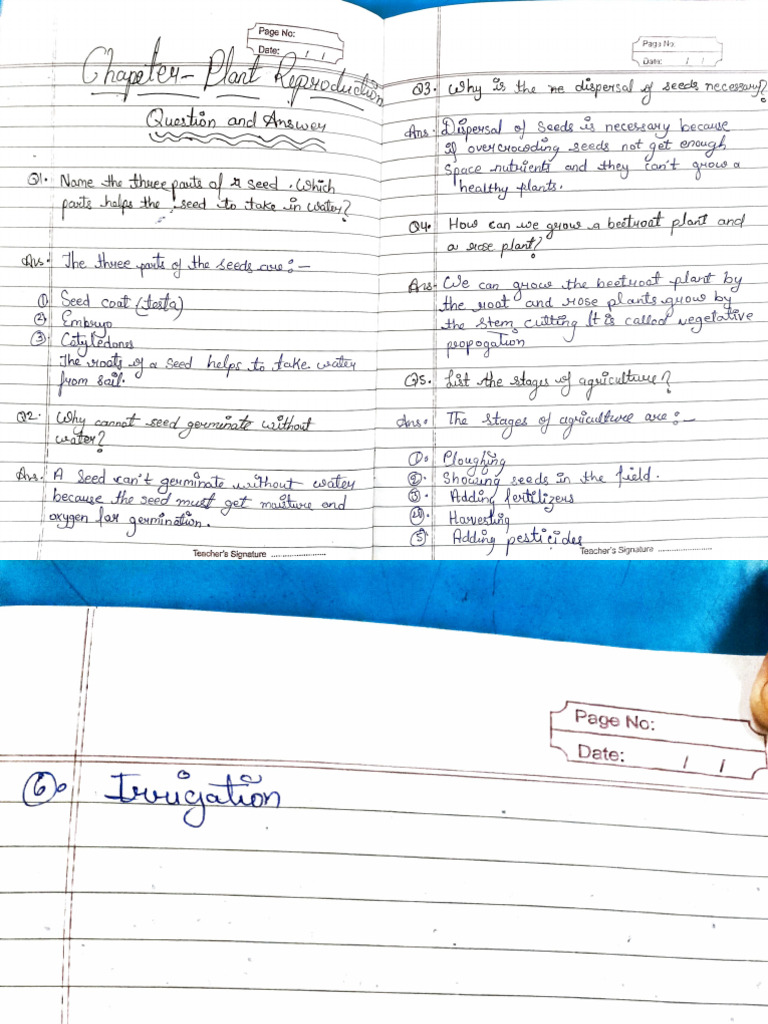 Page No:
Date: / /
Chapeter - Plant Reproduction
Question and Answer
Q1. Name the three parts of a seed. Which
parts helps the seed to take in water?
Ans: The three parts of the seeds are:-
① Seed coat (testa)
② Embryo
③ Cotyledons
The roots of a seed helps to take water
from soil.
Q2. Why cannot seed germinate without
water?
Ans. A seed can't germinate without water
because the seed must get moisture and
oxygen for germination.
Teacher's Signature ........................
Page No:
Date: / /
Q3. Why is the ne dispersal of seeds necessary?
Ans: Dispersal of seeds is necessary because
if overcrowding seeds not get enough
space nutrients and they can't grow a
healthy plants.
Q4. How can we grow a beetroot plant and
a rose plant?
Ans. We can grow the beetroot plant by
the root and rose plants grow by
the stem cutting It is called vegetative
propogation
Q5. List the stages of agriculture?
Ans. The stages of agriculture are:-
①. Ploughing
②. Showing seeds in the field.
③. Adding fertilizers
④. Harvesting
⑤. Adding pesticides
Teacher's Signature ........................
Page No:
Date: / /
⑥. Irrigation